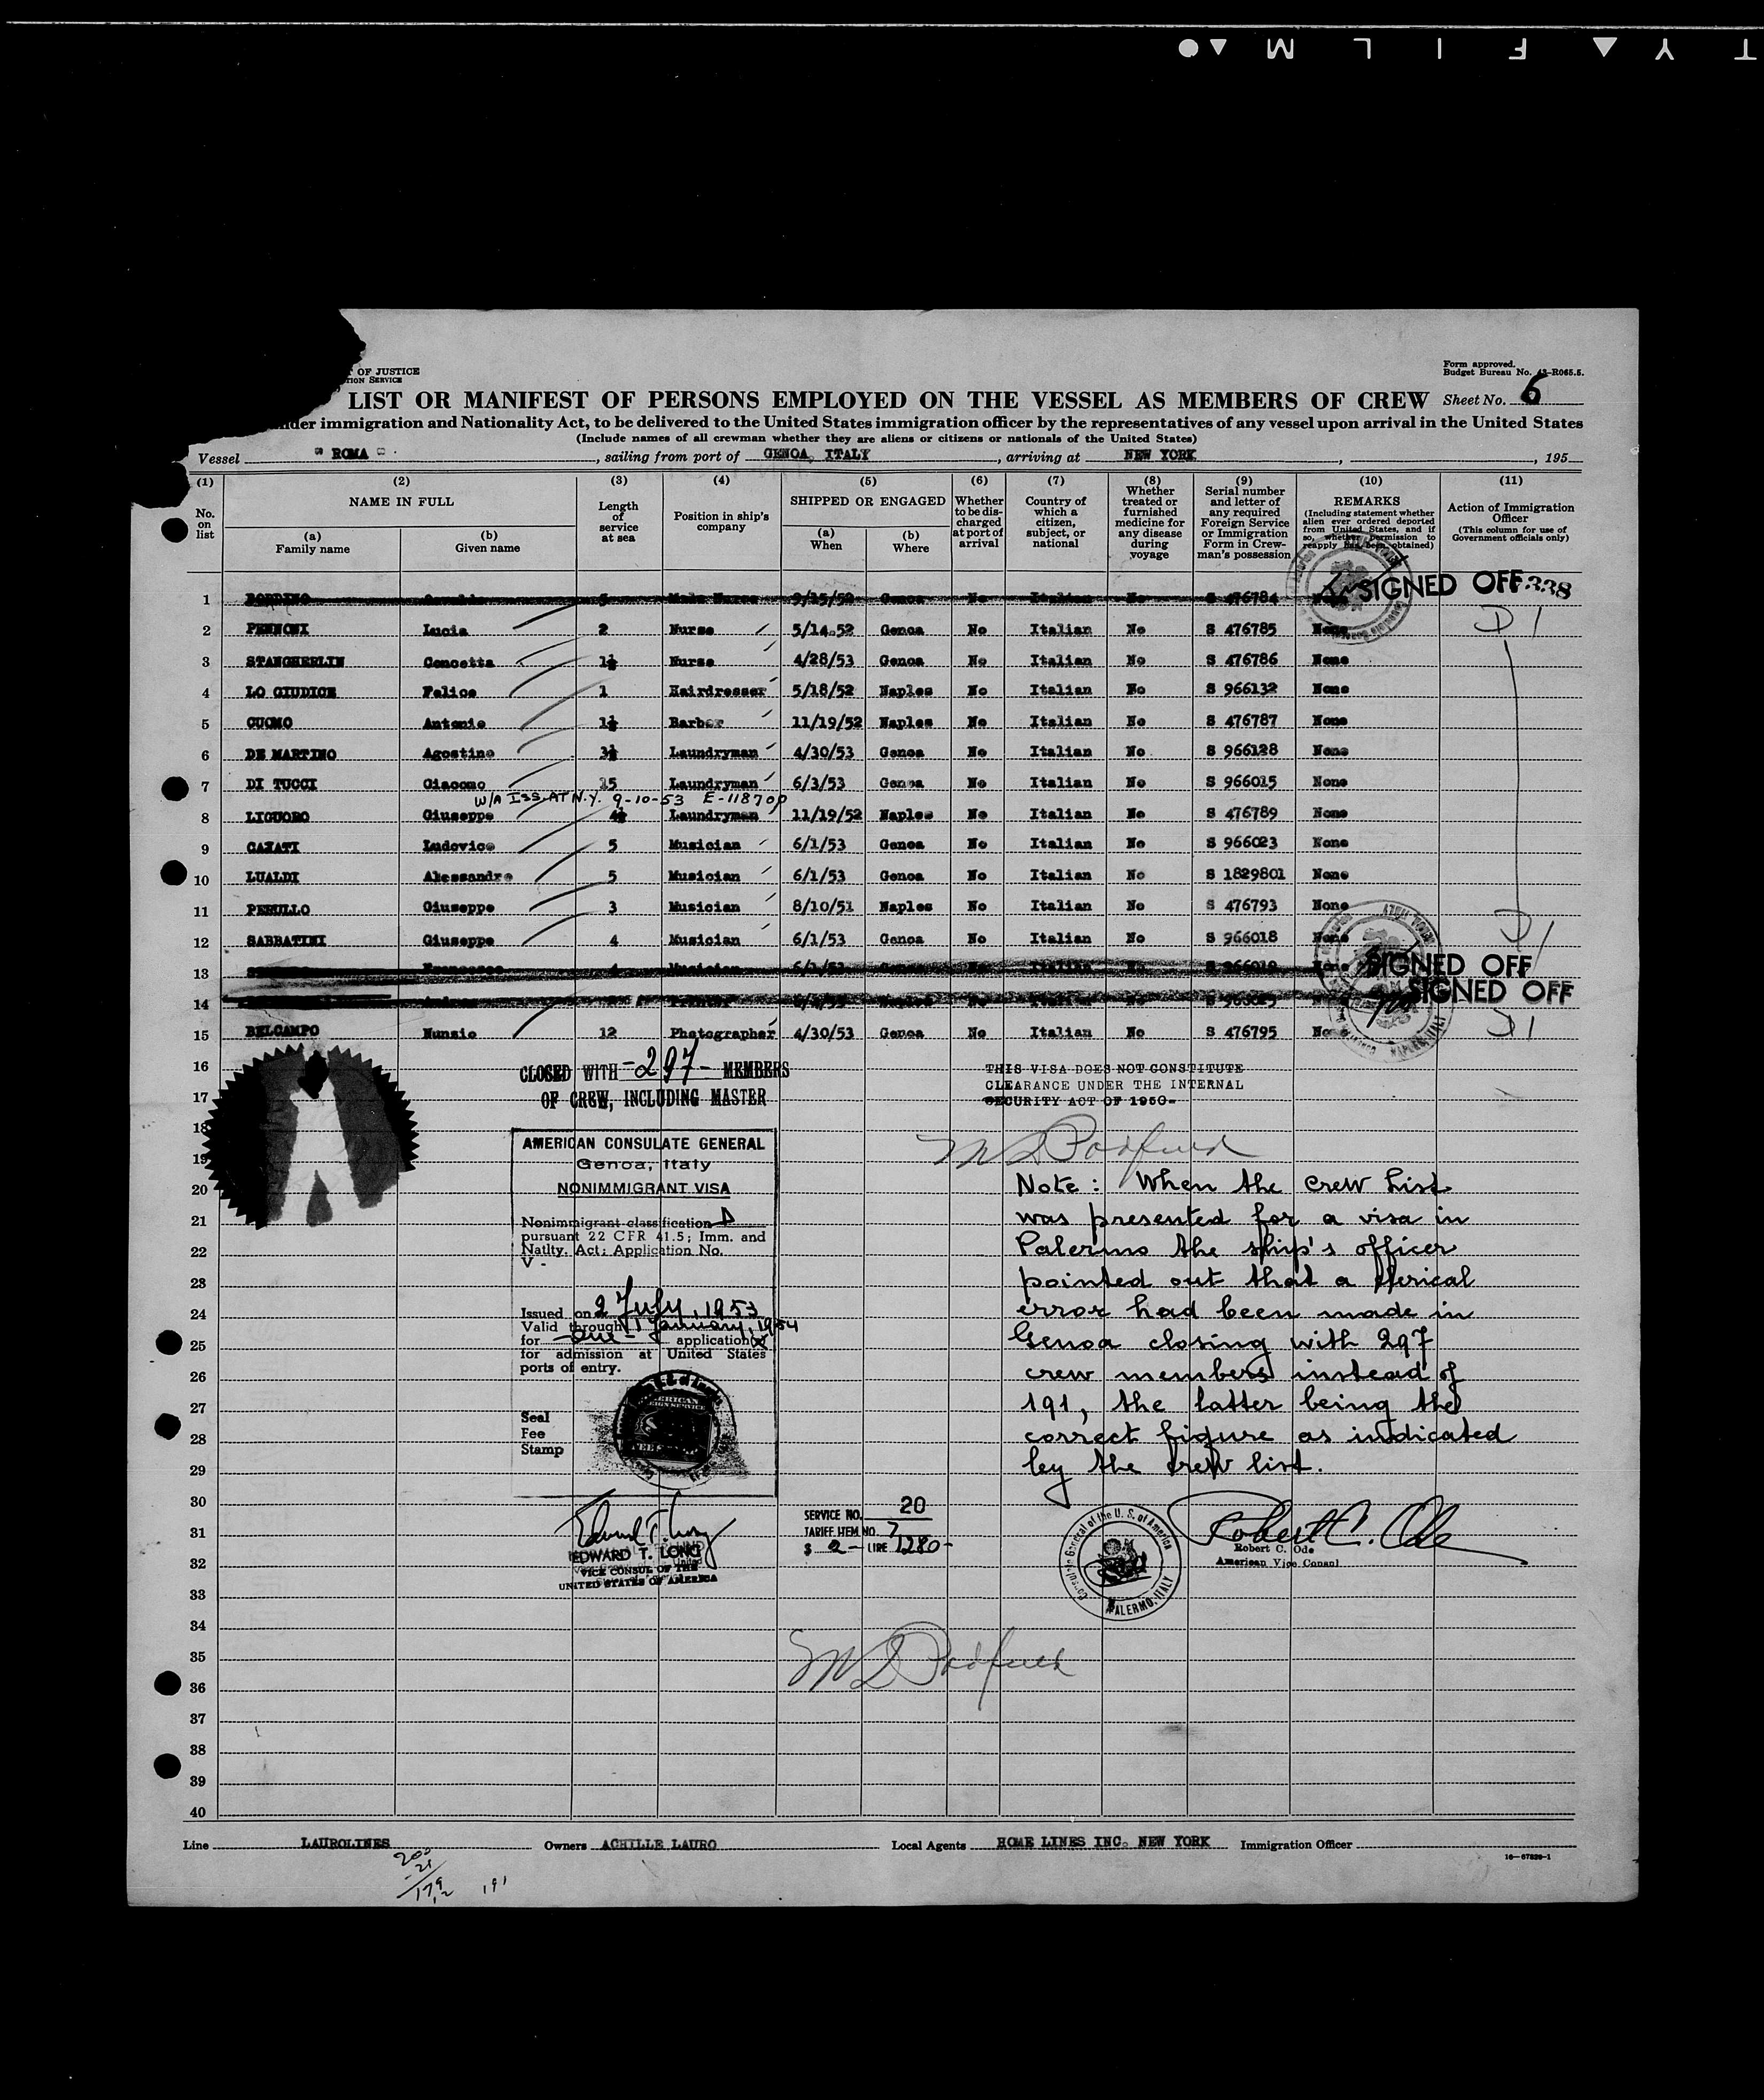 T Y F I L M
T OF JUSTICE
TION SERVICE
Form approved.
Budget Bureau No. 43-R065.5.
LIST OR MANIFEST OF PERSONS EMPLOYED ON THE VESSEL AS MEMBERS OF CREW Sheet No. 6
nder immigration and Nationality Act, to be delivered to the United States immigration officer by the representatives of any vessel upon arrival in the United States
(Include names of all crewman whether they are aliens or citizens or nationals of the United States)
Vessel " ROMA " , sailing from port of GENOA, ITALY , arriving at NEW YORK , , 195
(1) (2) (3) (4) (5) (6) (7) (8) (9) (10) (11)
No. on list
NAME IN FULL
(a) Family name
(b) Given name
Length of service at sea
Position in ship's company
SHIPPED OR ENGAGED
(a) When
(b) Where
Whether to be discharged at port of arrival
Country of which a citizen, subject, or national
Whether treated or furnished medicine for any disease during voyage
Serial number and letter of any required Foreign Service or Immigration Form in Crewman's possession
REMARKS
(Including statement whether alien ever ordered deported from United States, and if so, whether permission to reapply has been obtained)
Action of Immigration Officer
(This column for use of Government officials only)
1 9/15/52 Genoa No Italian No S 476784 None SIGNED OFF 338
2 PENNONI Lucia 2 Nurse 5/14.52 Genoa No Italian No S 476785 None D 1
3 STANGHERLIN Concetta 1½ Nurse 4/28/53 Genoa No Italian No S 476786 None
4 LO GIUDICE Felice 1 Hairdresser 5/18/52 Naples No Italian No S 966132 None
5 CUOMO Antonio 1½ Barber 11/19/52 Naples No Italian No S 476787 None
6 DE MARTINO Agostino 3½ Laundryman 4/30/53 Genoa No Italian No S 966128 None
7 DI TUCCI Giacomo 15 Laundryman 6/3/53 Genoa No Italian No S 966015 None
W/A ISS. AT N.Y. 9-10-53 E-11870P
8 LIGUORO Giuseppe 4½ Laundryman 11/19/52 Naples No Italian No S 476789 None
9 CAZATI Ludovico 5 Musician 6/1/53 Genoa No Italian No S 966023 None
10 LUALDI Alessandro 5 Musician 6/1/53 Genoa No Italian No S 1829801 None
11 PERULLO Giuseppe 3 Musician 8/10/51 Naples No Italian No S 476793 None
12 SABBATINI Giuseppe 4 Musician 6/1/53 Genoa No Italian No S 966018 None D 1
13 Francesco 4 Musician Italian None SIGNED OFF
14 Italian SIGNED OFF
15 BELCAMPO Nunzio 12 Photographer 4/30/53 Genoa No Italian No S 476795 No D 1
16
CLOSED WITH -297- MEMBERS
OF CREW, INCLUDING MASTER
THIS VISA DOES NOT CONSTITUTE
CLEARANCE UNDER THE INTERNAL
SECURITY ACT OF 1950-
17
18
AMERICAN CONSULATE GENERAL
Genoa, Italy
NONIMMIGRANT VISA
Nonimmigrant classification D
pursuant 22 CFR 41.5; Imm. and
Natlty. Act; Application No.
V -
Issued on 2 July, 1953
Valid through 1 January, 1954
for -One- application
for admission at United States
ports of entry.
Seal
Fee
Stamp
19
20
21
22
23
24
25
26
27
28
29
30
31
32
33
34
35
36
37
38
39
40
Note: When the crew list
was presented for a visa in
Palermo the ship's officer
pointed out that a clerical
error had been made in
Genoa closing with 297
crew members instead of
191, the latter being the
correct figure as indicated
by the crew list.
Edward T. Long
EDWARD T. LONG
VICE CONSUL OF THE
UNITED STATES OF AMERICA
SERVICE NO. 20
TARIFF ITEM NO. 7
$ 2- LIRE 1280-
Consulate General of the U. S. of America
PALERMO, ITALY
Robert C. Ode
Robert C. Ode
American Vice Consul
Line LAUROLINES Owners ACHILLE LAURO Local Agents HOME LINES INC. NEW YORK Immigration Officer
16-67239-1
200
21
179
12
191